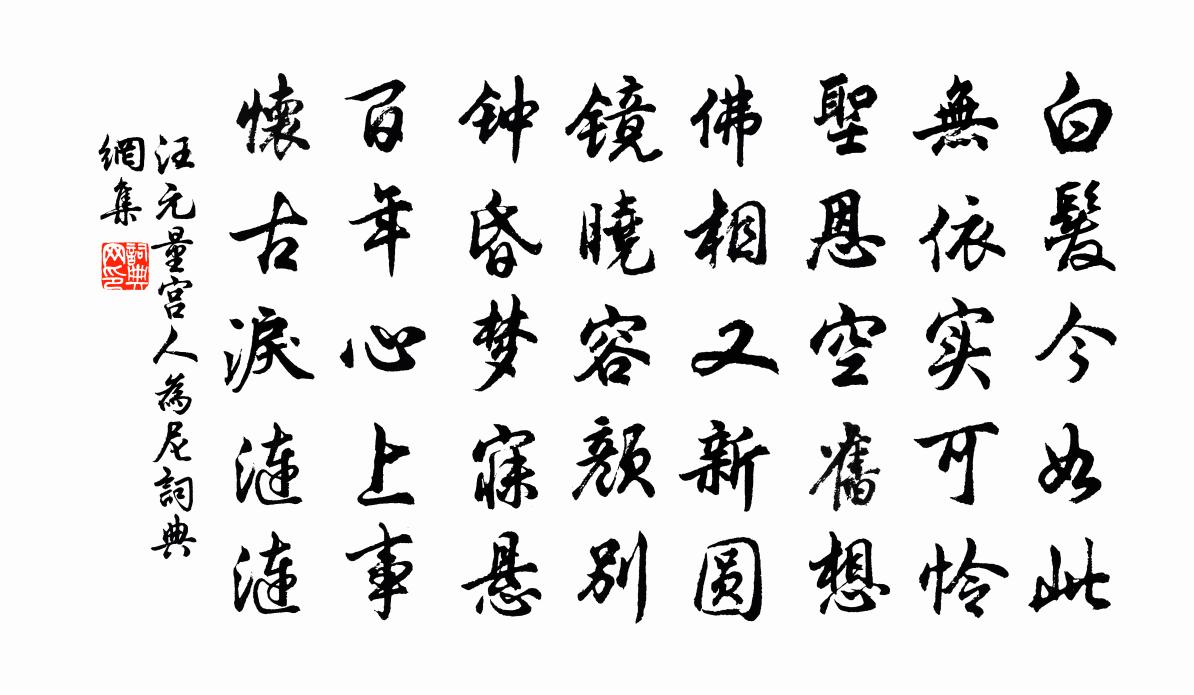 白髮今如此
無依实可怜
聖恩空舊想
佛相又新圆
镜曉容颜别
钟昏梦寐悬
百年心上事
懷古淚漣漣
汪元量宫人為尼詞典
網集
詞典
网印